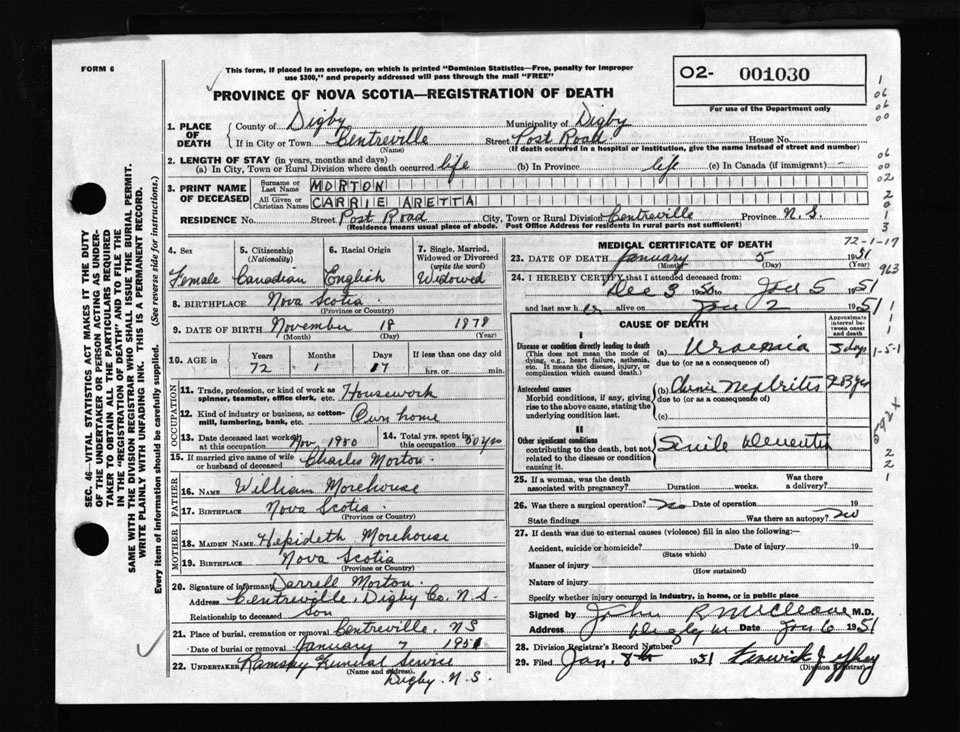 FORM 6
This form, if placed in an envelope, on which is printed "Dominion Statistics—Free, penalty for improper
use $300," and properly addressed will pass through the mail "FREE"
PROVINCE OF NOVA SCOTIA—REGISTRATION OF DEATH
O2- 001030
For use of the Department only
1. PLACE OF DEATH
County of Digby Municipality of Digby
If in City or Town Centreville (Name) Street Post Road House No.
(If death occurred in a hospital or institution, give the name instead of street and number)
2. LENGTH OF STAY (in years, months and days)
(a) In City, Town or Rural Division where death occurred life (b) In Province life (c) In Canada (if immigrant) -
3. PRINT NAME OF DECEASED
Surname or Last Name MORTON
All Given or Christian Names CARRIE ARETTA
RESIDENCE No. Street Post Road City, Town or Rural Division Centreville Province N.S.
(Residence means usual place of abode. Post Office Address for residents in rural parts not sufficient)
4. Sex Female
5. Citizenship (Nationality) Canadian
6. Racial Origin English
7. Single, Married, Widowed or Divorced (write the word) Widowed
8. BIRTHPLACE Nova Scotia
(Province or Country)
9. DATE OF BIRTH November 18 1878
(Month) (Day) (Year)
10. AGE in Years 72 Months 1 Days 17 If less than one day old hrs. or min.
OCCUPATION
11. Trade, profession, or kind of work as spinner, teamster, office clerk, etc. Housework
12. Kind of industry or business, as cotton-mill, lumbering, bank, etc. Own home
13. Date deceased last worked at this occupation Nov 1950
14. Total yrs. spent in this occupation 50 yrs
15. If married give name of wife or husband of deceased Charles Morton
FATHER
16. NAME William Morehouse
17. BIRTHPLACE Nova Scotia
(Province or Country)
MOTHER
18. MAIDEN NAME Hepideth Morehouse
19. BIRTHPLACE Nova Scotia
(Province or Country)
20. Signature of informant Darrell Morton
Address Centreville, Digby Co. N.S.
Relationship to deceased Son
21. Place of burial, cremation or removal Centreville, NS
Date of burial or removal January 7 1951
22. UNDERTAKER Ramsay Funeral Service
(Name and address)
Digby. N.S.
MEDICAL CERTIFICATE OF DEATH
72-1-17
23. DATE OF DEATH January 5 1951
(Month) (Day) (Year)
24. I HEREBY CERTIFY that I attended deceased from:
Dec 3 1950 to Jan 5 1951
and last saw her alive on Jan 2 1951
CAUSE OF DEATH
Approximate interval between onset and death
I
Disease or condition directly leading to death
(This does not mean the mode of dying, e.g., heart failure, asthenia, etc. It means the disease, injury, or complication which caused death.)
(a) Uraemia 3 days
due to (or as a consequence of)
Antecedent causes
Morbid conditions, if any, giving rise to the above cause, stating the underlying condition last.
(b) Chronic Nephritis
due to (or as a consequence of)
(c)
II
Other significant conditions
contributing to the death, but not related to the disease or condition causing it.
Senile Dementia
25. If a woman, was the death associated with pregnancy? Duration weeks. Was there a delivery?
26. Was there a surgical operation? No Date of operation 19
State findings Was there an autopsy? No
27. If death was due to external causes (violence) fill in also the following:—
Accident, suicide or homicide? Date of injury 19
(State which)
Manner of injury
(How sustained)
Nature of injury
Specify whether injury occurred in industry, in home, or in public place
Signed by John R McCleave M.D.
Address Digby Date Jan 6 1951
28. Division Registrar's Record Number
29. Filed Jan. 8th 1951 Fenwick
(Division Registrar)
SEC. 46—VITAL STATISTICS ACT MAKES IT THE DUTY
OF THE UNDERTAKER OR PERSON ACTING AS UNDER-
TAKER TO OBTAIN ALL THE PARTICULARS REQUIRED
IN THE "REGISTRATION OF DEATH" AND TO FILE THE
SAME WITH THE DIVISION REGISTRAR WHO SHALL ISSUE THE BURIAL PERMIT.
WRITE PLAINLY WITH UNFADING INK. THIS IS A PERMANENT RECORD.
Every item of information should be carefully supplied. (See reverse side for instructions.)
1
06
06
00
06
00
02
2
0
1
3
963
1
1
1-5-1
592x
2
2
1